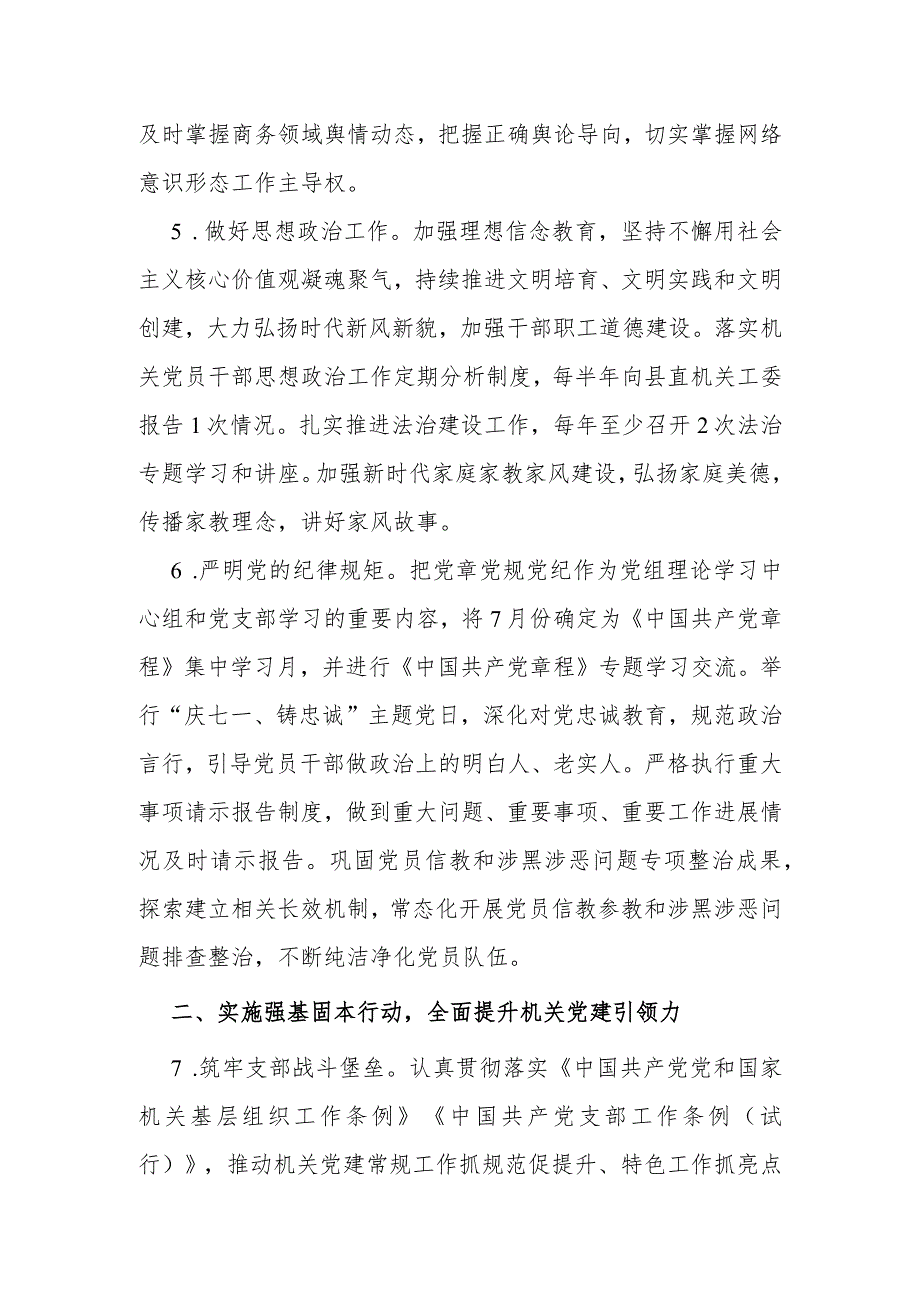 及时掌握商务领域舆情动态，把握正确舆论导向，切实掌握网络
意识形态工作主导权。
5 .做好思想政治工作。加强理想信念教育，坚持不懈用社会
主义核心价值观凝魂聚气，持续推进文明培育、文明实践和文明
创建，大力弘扬时代新风新貌，加强干部职工道德建设。落实机
关党员干部思想政治工作定期分析制度，每半年向县直机关工委
报告1次情况。扎实推进法治建设工作，每年至少召开2次法治
专题学习和讲座。加强新时代家庭家教家风建设，弘扬家庭美德，
传播家教理念，讲好家风故事。
6 .严明党的纪律规矩。把党章党规党纪作为党组理论学习中
心组和党支部学习的重要内容，将7月份确定为《中国共产党章
程》集中学习月，并进行《中国共产党章程》专题学习交流。举
行“庆七一、铸忠诚”主题党日，深化对党忠诚教育，规范政治
言行，引导党员干部做政治上的明白人、老实人。严格执行重大
事项请示报告制度，做到重大问题、重要事项、重要工作进展情
况及时请示报告。巩固党员信教和涉黑涉恶问题专项整治成果，
探索建立相关长效机制，常态化开展党员信教参教和涉黑涉恶问
题排查整治，不断纯洁净化党员队伍。
二、实施强基固本行动，全面提升机关党建引领力
7 .筑牢支部战斗堡垒。认真贯彻落实《中国共产党党和国家
机关基层组织工作条例》《中国共产党支部工作条例（试
行）》，推动机关党建常规工作抓规范促提升、特色工作抓亮点